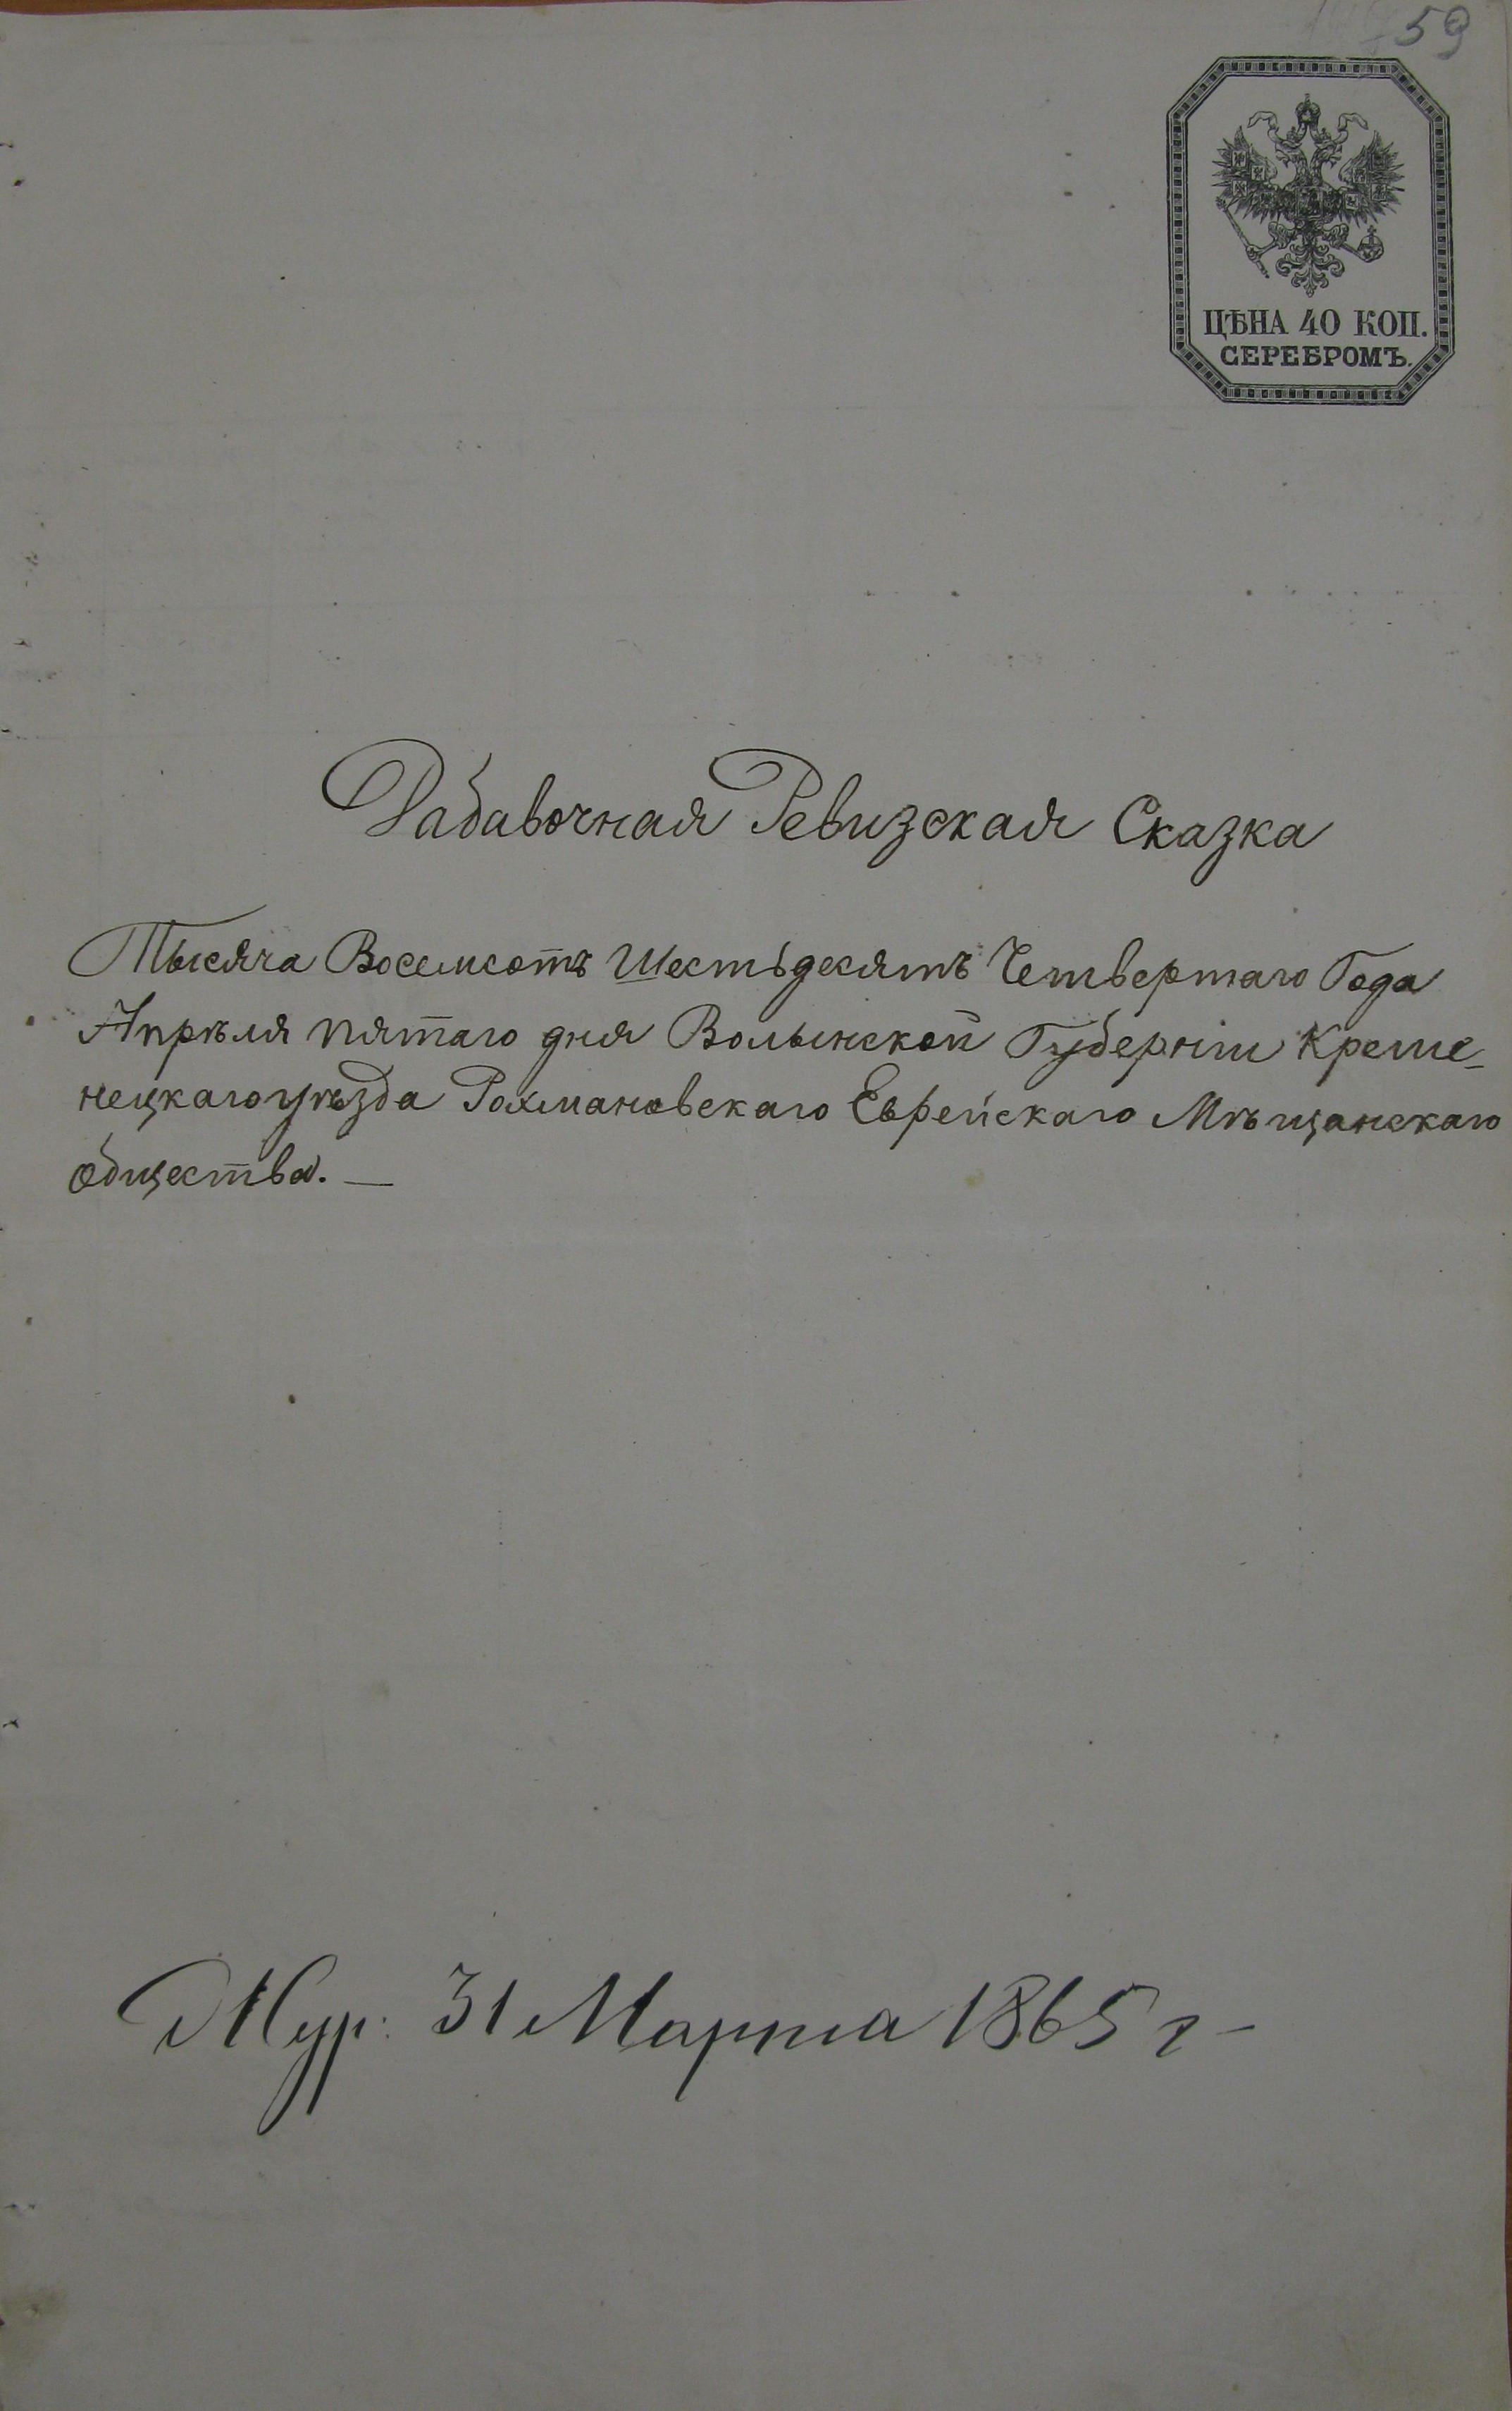 59
ЦѢНА 40 КОП.
СЕРЕБРОМЪ.
Дабавочная Ревизская Сказка
Тысяча Восемсотъ Шестьдесятъ Четвертаго Года
Апрѣля пятаго дня Волынской Губерніи Креме-
нецкаго уѣзда Рохмановскаго Еврейскаго Мѣщанскаго
общества. —
Жур: 31 Марта 1865 г -